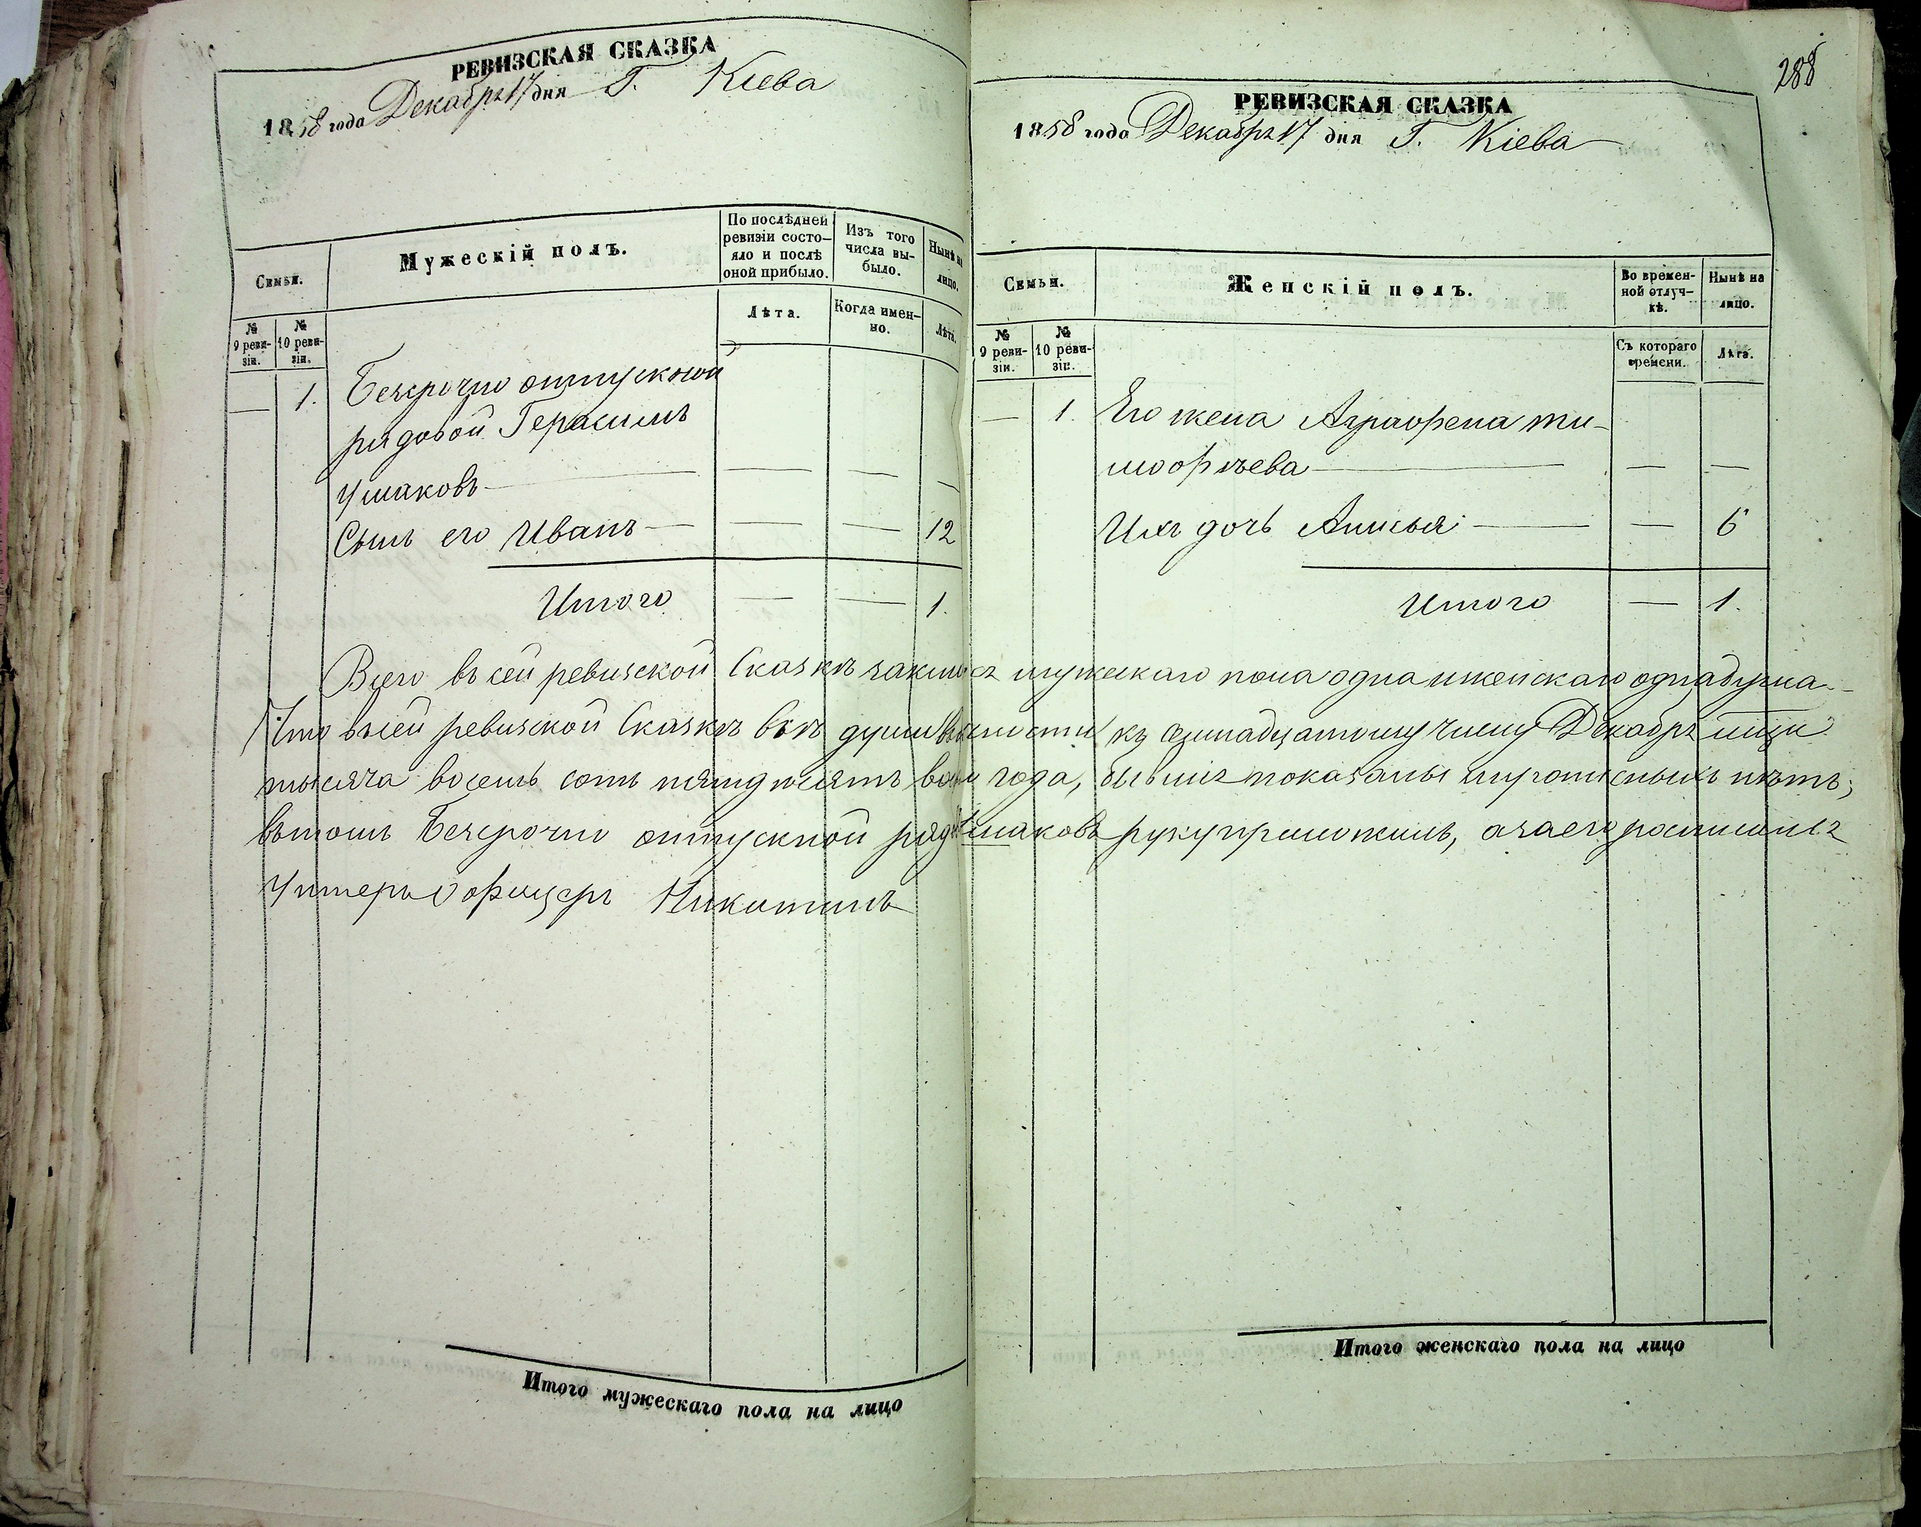 РЕВИЗСКАЯ СКАЗКА
1858 года Декабря 17 дня Г. Кіева
Семьи.
Мужескій полъ.
По послѣдней
ревизіи состо-
яло и послѣ
оной прибыло.
Изъ того
числа вы-
было.
Нынѣ на
лицо.
№
9 реви-
зіи.
№
10 реви-
зіи.
Лѣта.
Когда имен-
но.
Лѣта.
— 1. Безсрочно отпускной
рядовой Герасимъ
Ушаковъ — — — —
Сынъ его Иванъ — — — 12
Итого — — 1.
288
РЕВИЗСКАЯ СКАЗКА
1858 года Декабря 17 дня Г. Кіева
Семьи.
Женскій полъ.
Во времен-
ной отлуч-
кѣ.
Нынѣ на
лицо.
№
9 реви-
зіи.
№
10 реви-
зіи.
Съ котораго
времени.
Лѣта.
— 1. Его жена Аграфена Ти-
мофѣева — — —
Ихъ дочь Анисья — — 6
Итого — 1.
Всего въ сей ревизской Сказкѣ мужескаго пола одна и женскаго одна душа —
Что въ сей ревизской Сказкѣ всѣ души къ семнадцатому числу Декабря
тысяча восемь сотъ пятдесятъ года, показаны и прописныхъ нѣтъ;
въ томъ Безсрочно отпускной ряд. Ушаковъ руку приложилъ, а за его росписался
Унтеръ Офицеръ Никитинъ
Итого мужескаго пола на лицо
Итого женскаго пола на лицо